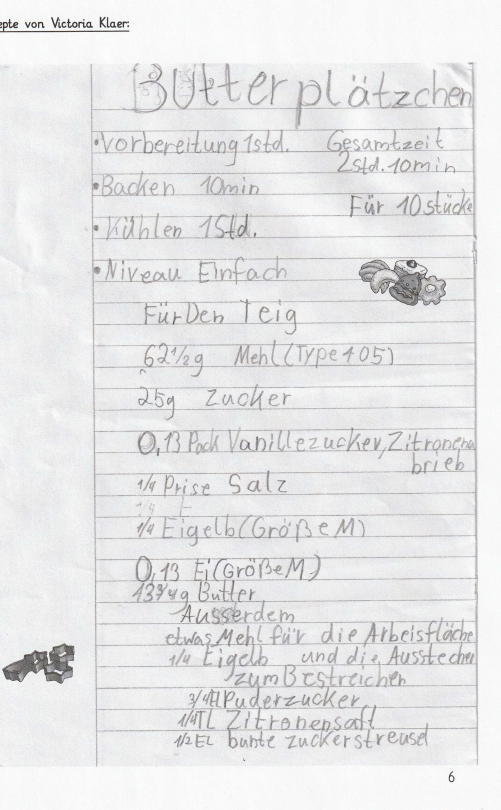 epte von Victoria Klaer:
Butterplätzchen
•Vorbereitung 1std. Gesamtzeit
2std. 10min
•Backen 10min
Für 10 stücke
•Kühlen 1Std.
•Niveau Einfach
Für Den Teig
62 1/2 g Mehl (Type 405)
25g Zucker
0,13 Pack Vanillezucker, Zitronena
brieb
1/4 Prise Salz
1/4 Eigelb (Größe M)
0,13 Ei (Größe M)
43 3/4 g Butter
Ausserdem
etwas Mehl für die Arbeisfläche
1/4 Eigelb und die Ausstecher
zum Bestreichen
3/4 El Puderzucker
1/4 TL Zitronensaft
1/2 EL bunte zuckerstreusel
6